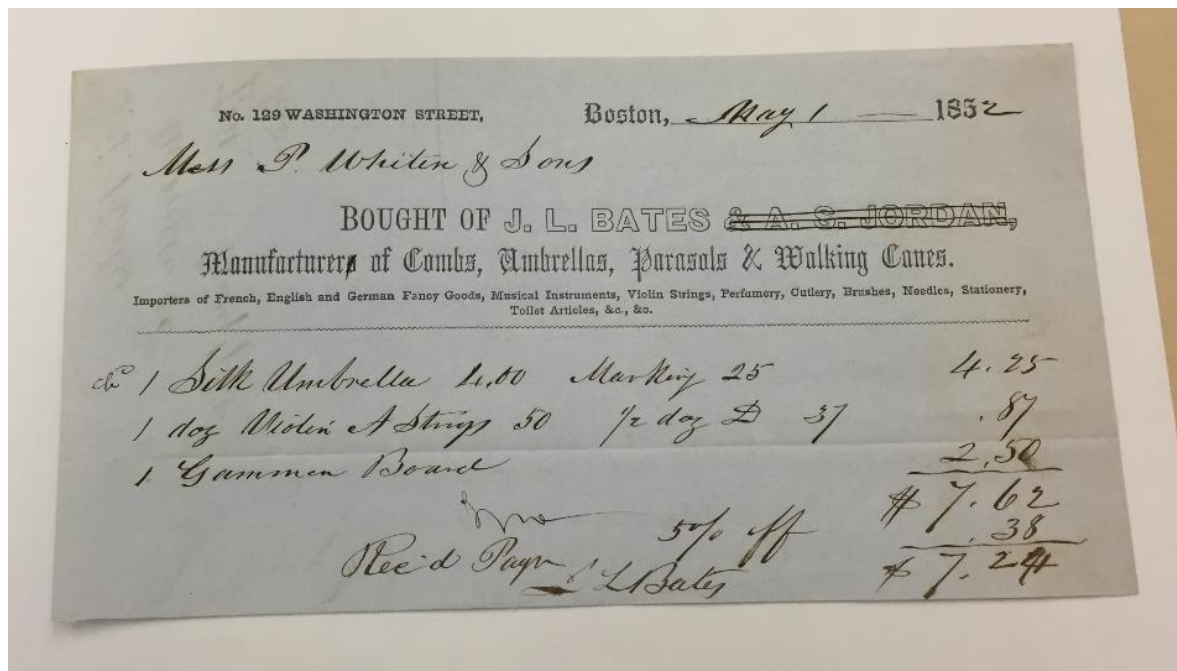 No. 129 WASHINGTON STREET, Boston, May 1 1852
Mess P. Whitin & Sons
BOUGHT OF J. L. BATES & A. S. JORDAN,
Manufacturers of Combs, Umbrellas, Parasols & Walking Canes.
Importers of French, English and German Fancy Goods, Musical Instruments, Violin Strings, Perfumery, Cutlery, Brushes, Needles, Stationery,
Toilet Articles, &c., &c.
1 Silk Umbrella 4.00 Marking 25 4.25
1 doz Violin A Strings 50 1/2 doz D 37 .87
1 Gammon Board 2.50
$ 7.62
5% off .38
Rec'd Paym $ 7.24
J L Bates